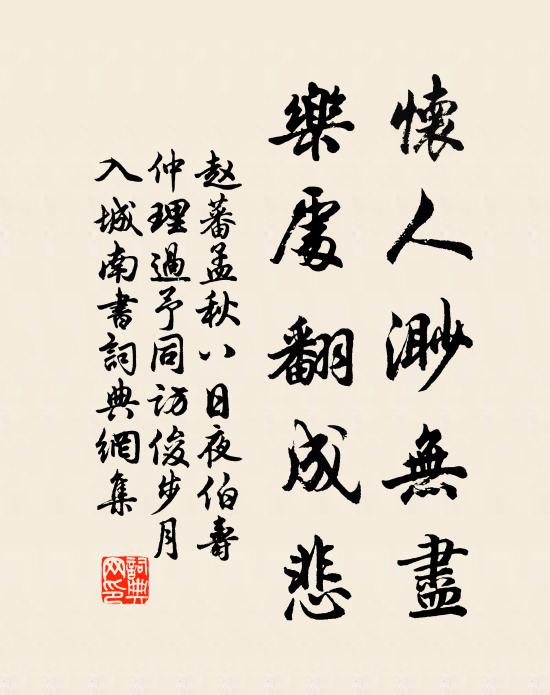 懷人渺無盡
樂處翻成悲
赵蕃孟秋八日夜伯壽
仲理過予同访俊步月
入城南書詞典網集
詞典网印